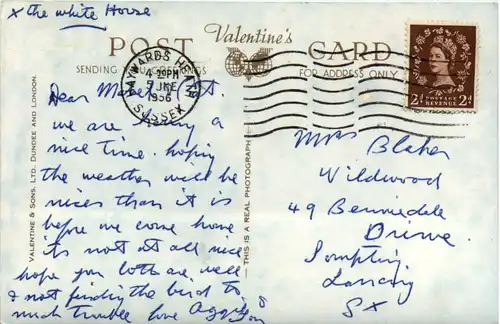 x the white House
POST Valentine's CARD
SENDING
FOR ADDRESS ONLY
HAYWARDS HEATH
4-PM
7 JNE
1956
SUSSEX
POSTAGE
REVENUE
2D 2D
VALENTINE & SONS, LTD. DUNDEE AND LONDON.
— THIS IS A REAL PHOTOGRAPH —
Dear
we are having a
nice time. hoping
the weather will be
nicer than it is
before we come home
its not at all nice
hope you both are well
& not finding the bird to
much trouble love
Mrs Blaker
Wildwood
49
Drive
Sompting
Lancing
Sx